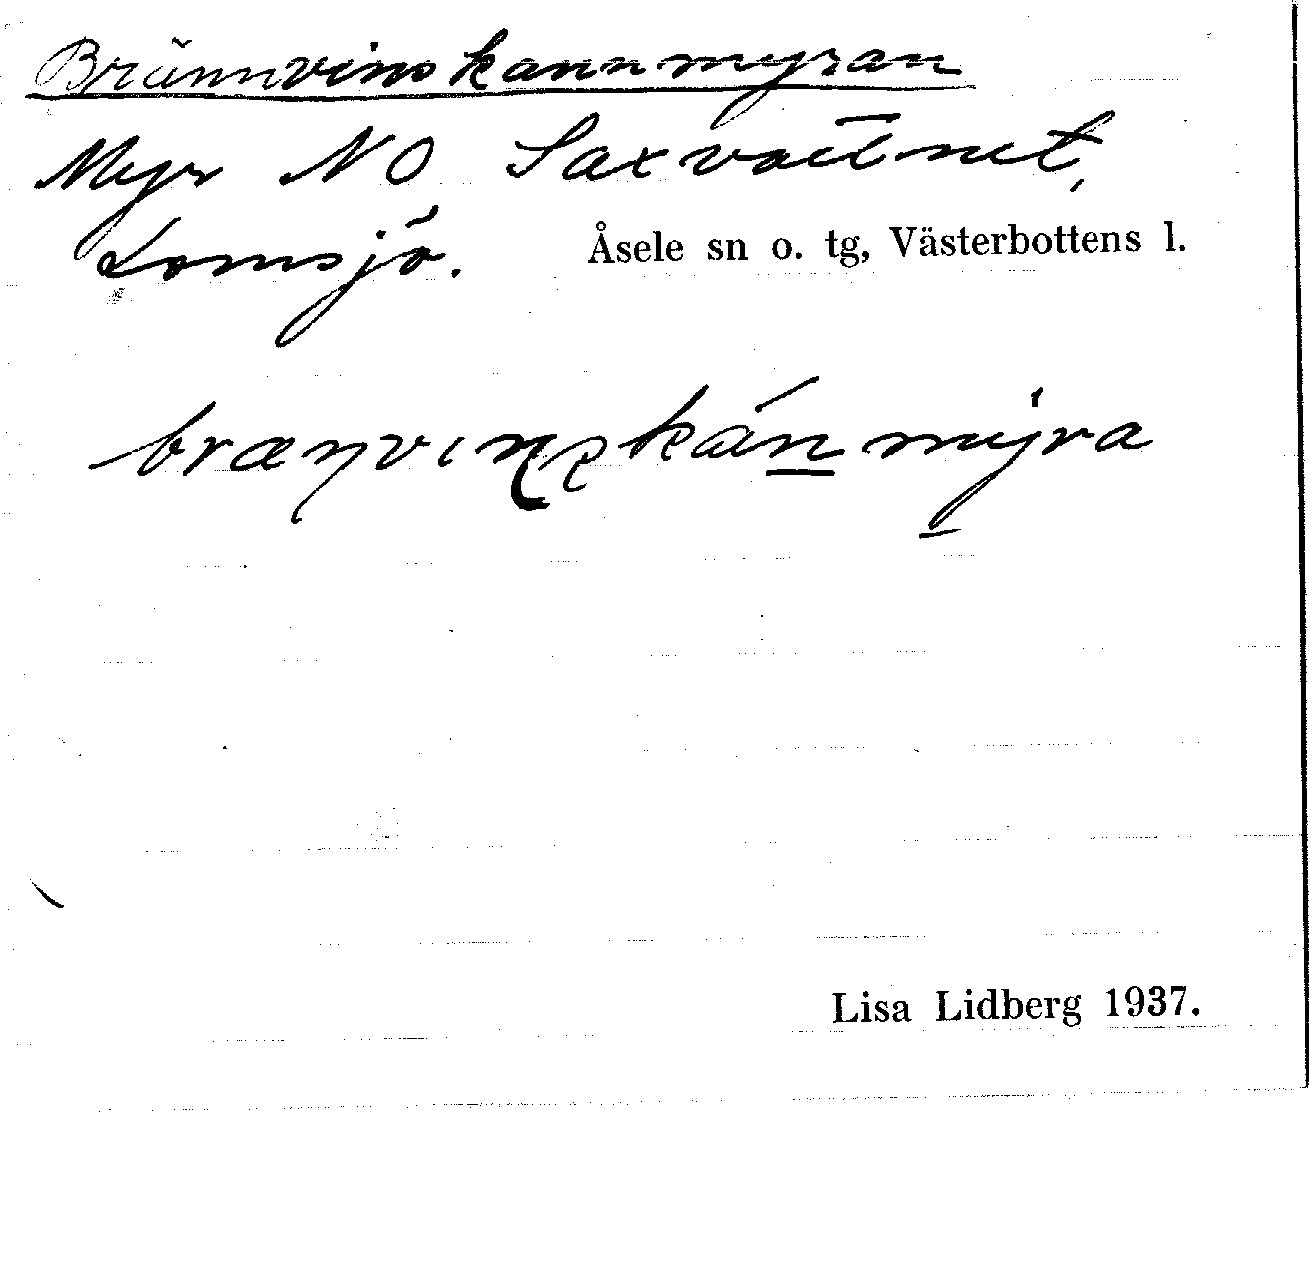 Brännvinskannmyran
Myr NO Saxvattnet,
Lomsjö. Åsele sn o. tg, Västerbottens l.
Lisa Lidberg 1937.